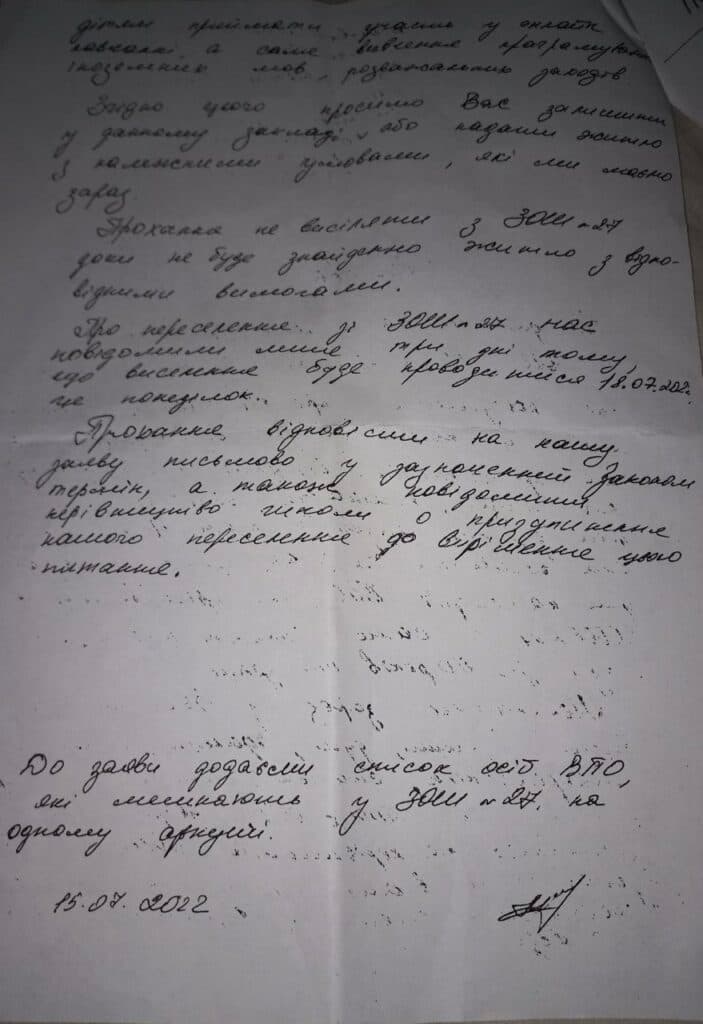 дітям приймати участь у онлайн
навчанні, а саме вивчення програмування
іноземних мов, розважальних заходів
Згідно цього просимо Вас залишити
у данному закладі, або надати житло
з належними умовами, які ми маємо
зараз.
Прохання не висіляти з ЗОШ №27
доки не буде знайденно житло з відпо-
відними вимогами.
Про переселення зі ЗОШ №27 нас
повідомили лише три дні тому,
що виселення буде проводитися 18.07.202
це понеділок.
Прохання відповісти на нашу
заяву письмово у зазначенний Законом
термін, а також повідомити
керівництво школи о призупинення
нашого переселення до вірішення цього
питання.
До заяви додаєм список осіб ВПО,
які мешкають у ЗОШ №27, на
одному аркуші.
15.07.2022